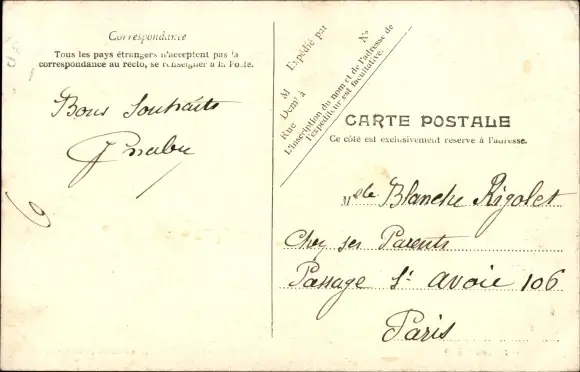 Correspondance
Tous les pays étrangers n'acceptent pas la
correspondance au recto, se renseigner à la Poste.
Bons Souhaits
Expédié par
M
Demt à
Rue
No
L'inscription du nom et de l'adresse de
l'expéditeur est facultative.
CARTE POSTALE
Ce côté est exclusivement réservé à l'adresse.
Mlle Blanche Rigolet
Chez ses Parents
Passage St Avoie 106
Paris